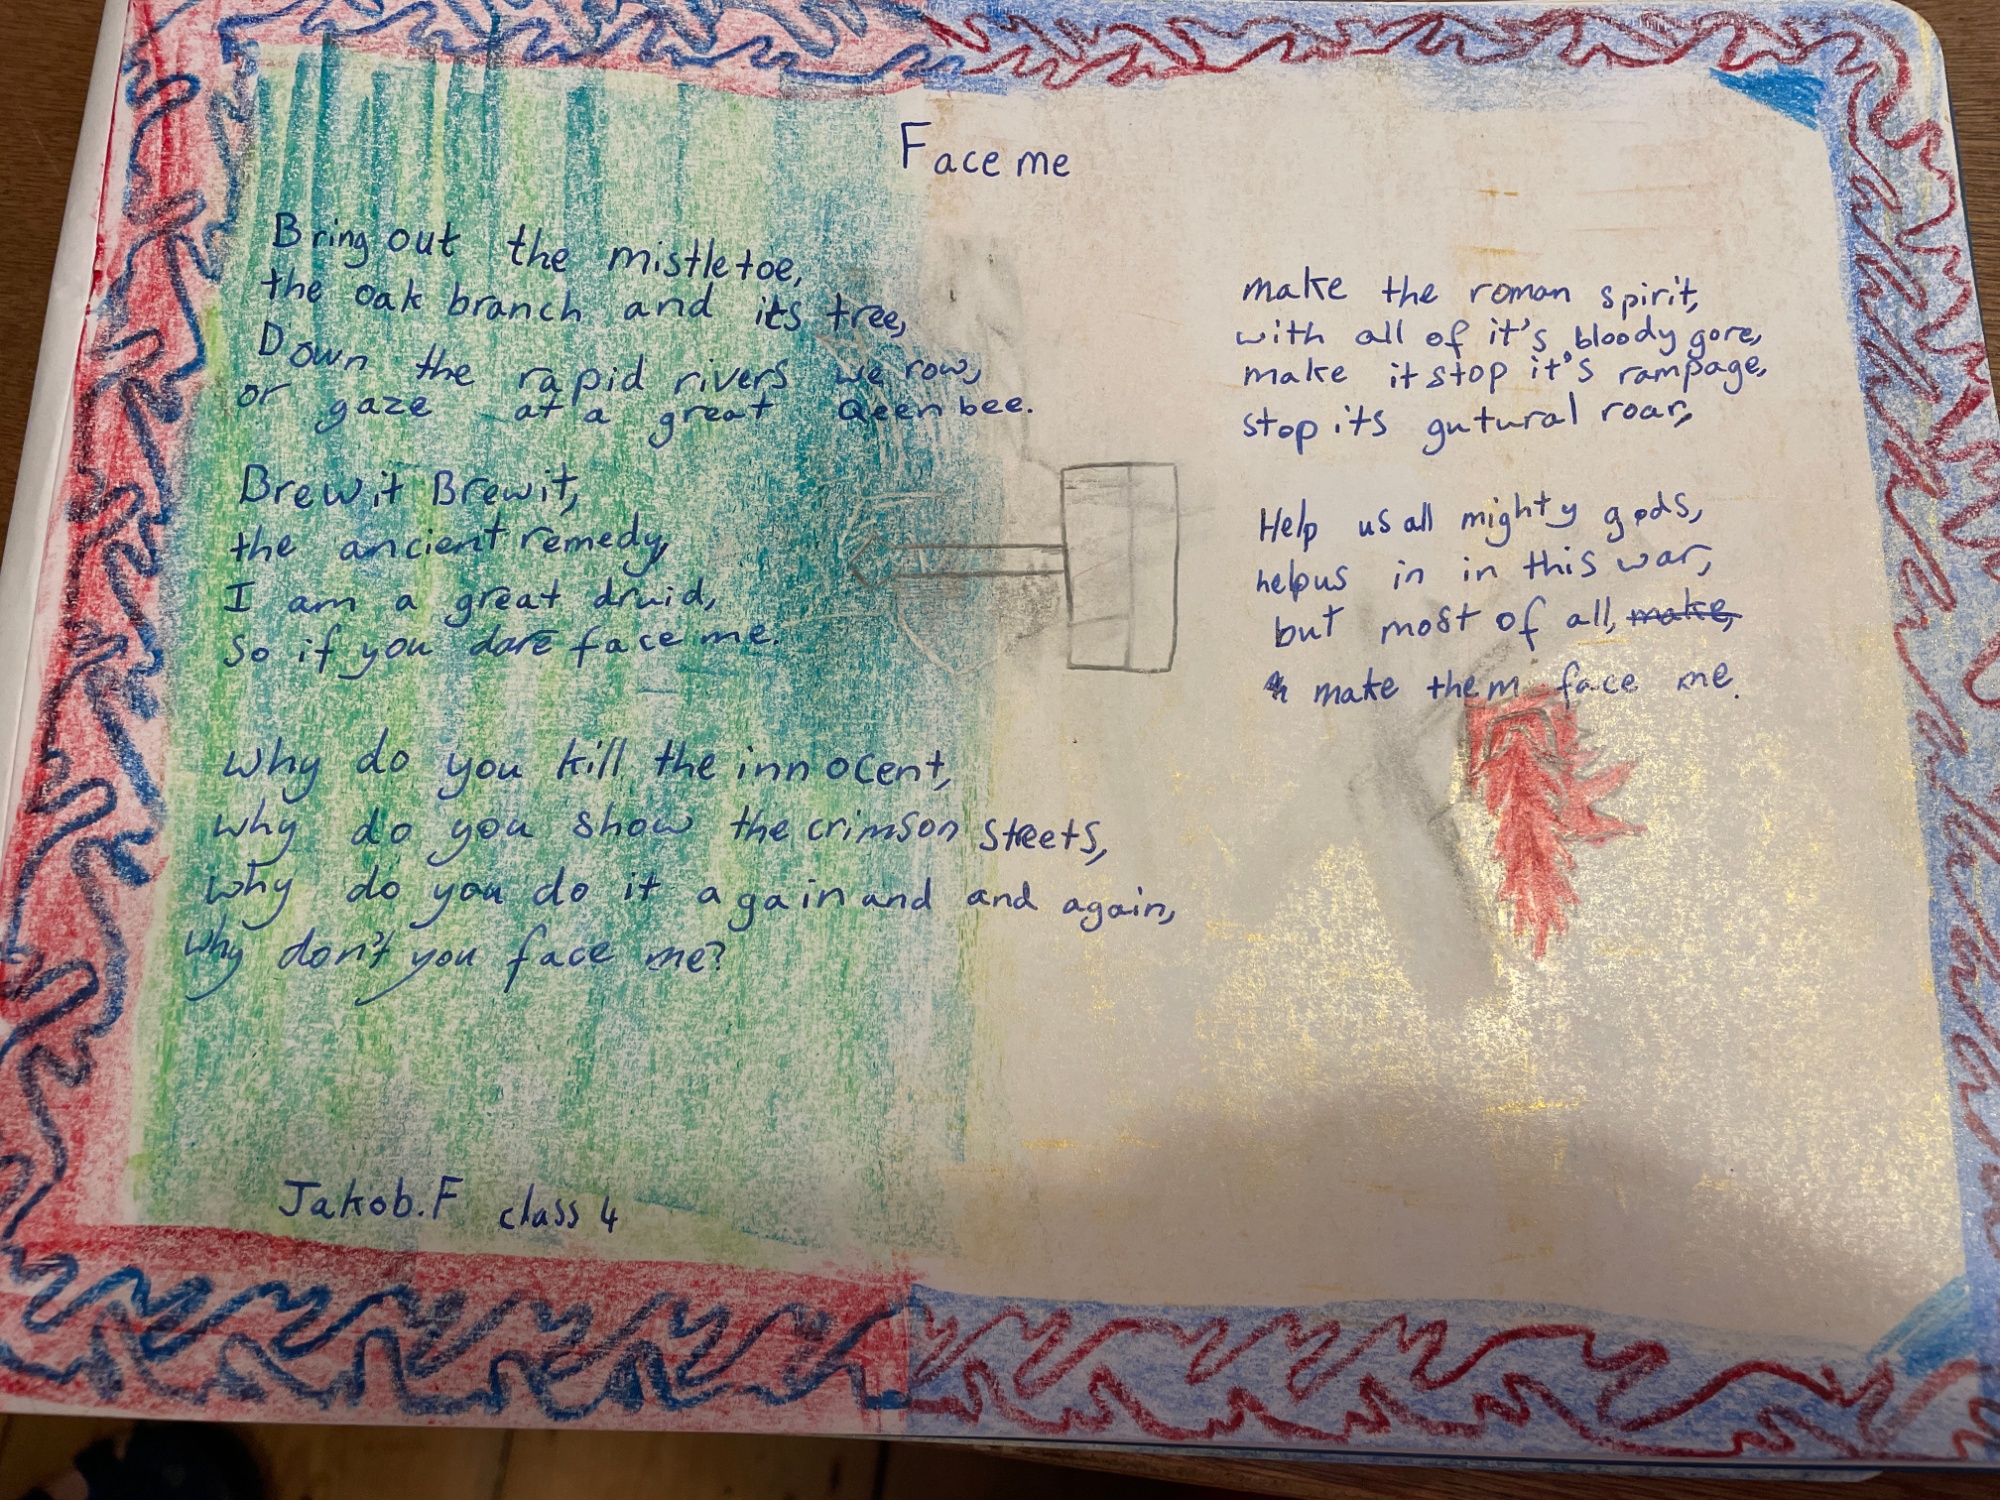 Face me
Bring out the mistletoe,
the oak branch and its tree,
Down the rapid rivers we row,
or gaze at a great Qeen bee.
Brew it Brew it,
the ancient remedy,
I am a great druid,
So if you dare face me.
Why do you kill the innocent,
why do you show the crimson streets,
why do you do it again and and again,
why don't you face me?
Jakob.F class 4
make the roman spirit,
with all of it's bloody gore,
make it stop it's rampage,
stop its gutural roar,
Help us all mighty gods,
help us in in this war,
but most of all, make,
make them face me.